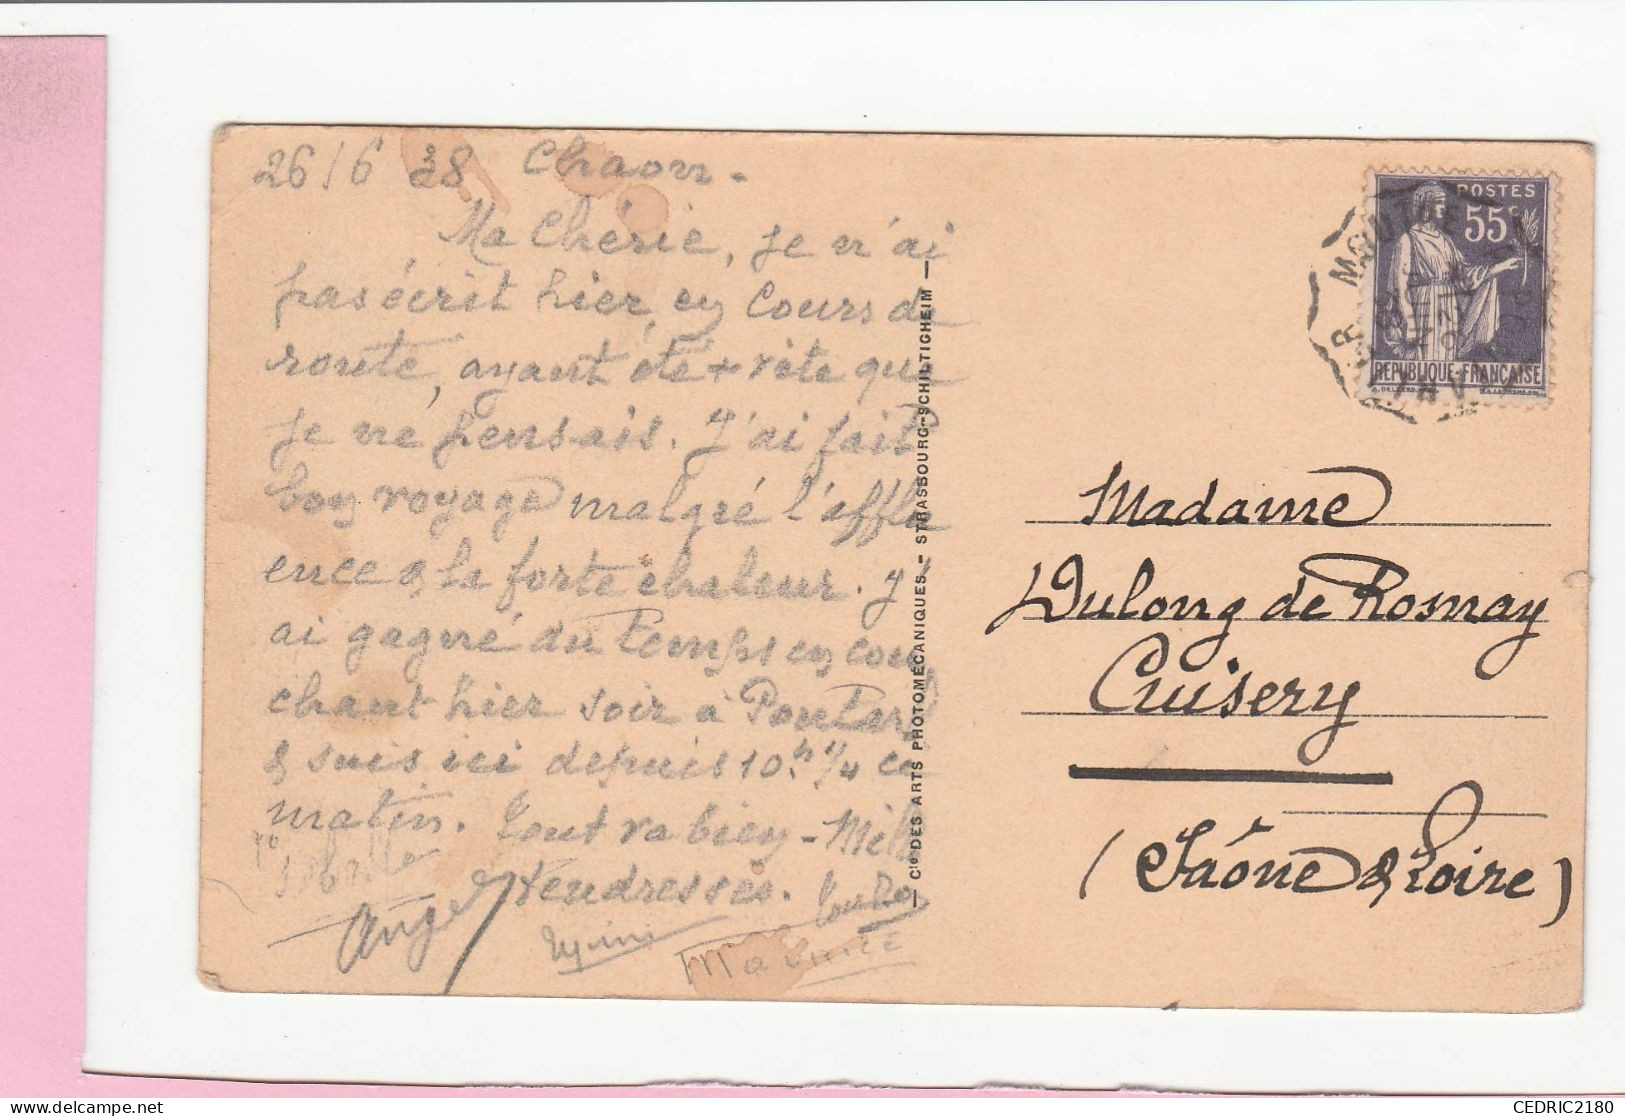 26/6 38 Chaon -
Ma Chérie, je n'ai
pas écrit hier, en cours de
route, ayant été + vite que
je ne pensais. J'ai fait
bon voyage malgré l'afflu
ence & la forte chaleur. J'
ai gagné du temps en cou
chant hier soir à
& suis ici depuis 10 h 1/4 ce
matin. tout va bien - Mille
tendresses.
Ange
Maurice
— Cie DES ARTS PHOTOMÉCANIQUES - STRASBOURG-SCHILTIGHEIM —
POSTES
55c
REPUBLIQUE-FRANÇAISE
Madame
Dulong de Rosnay
Cuisery
(Saône & Loire)
CEDRIC2180